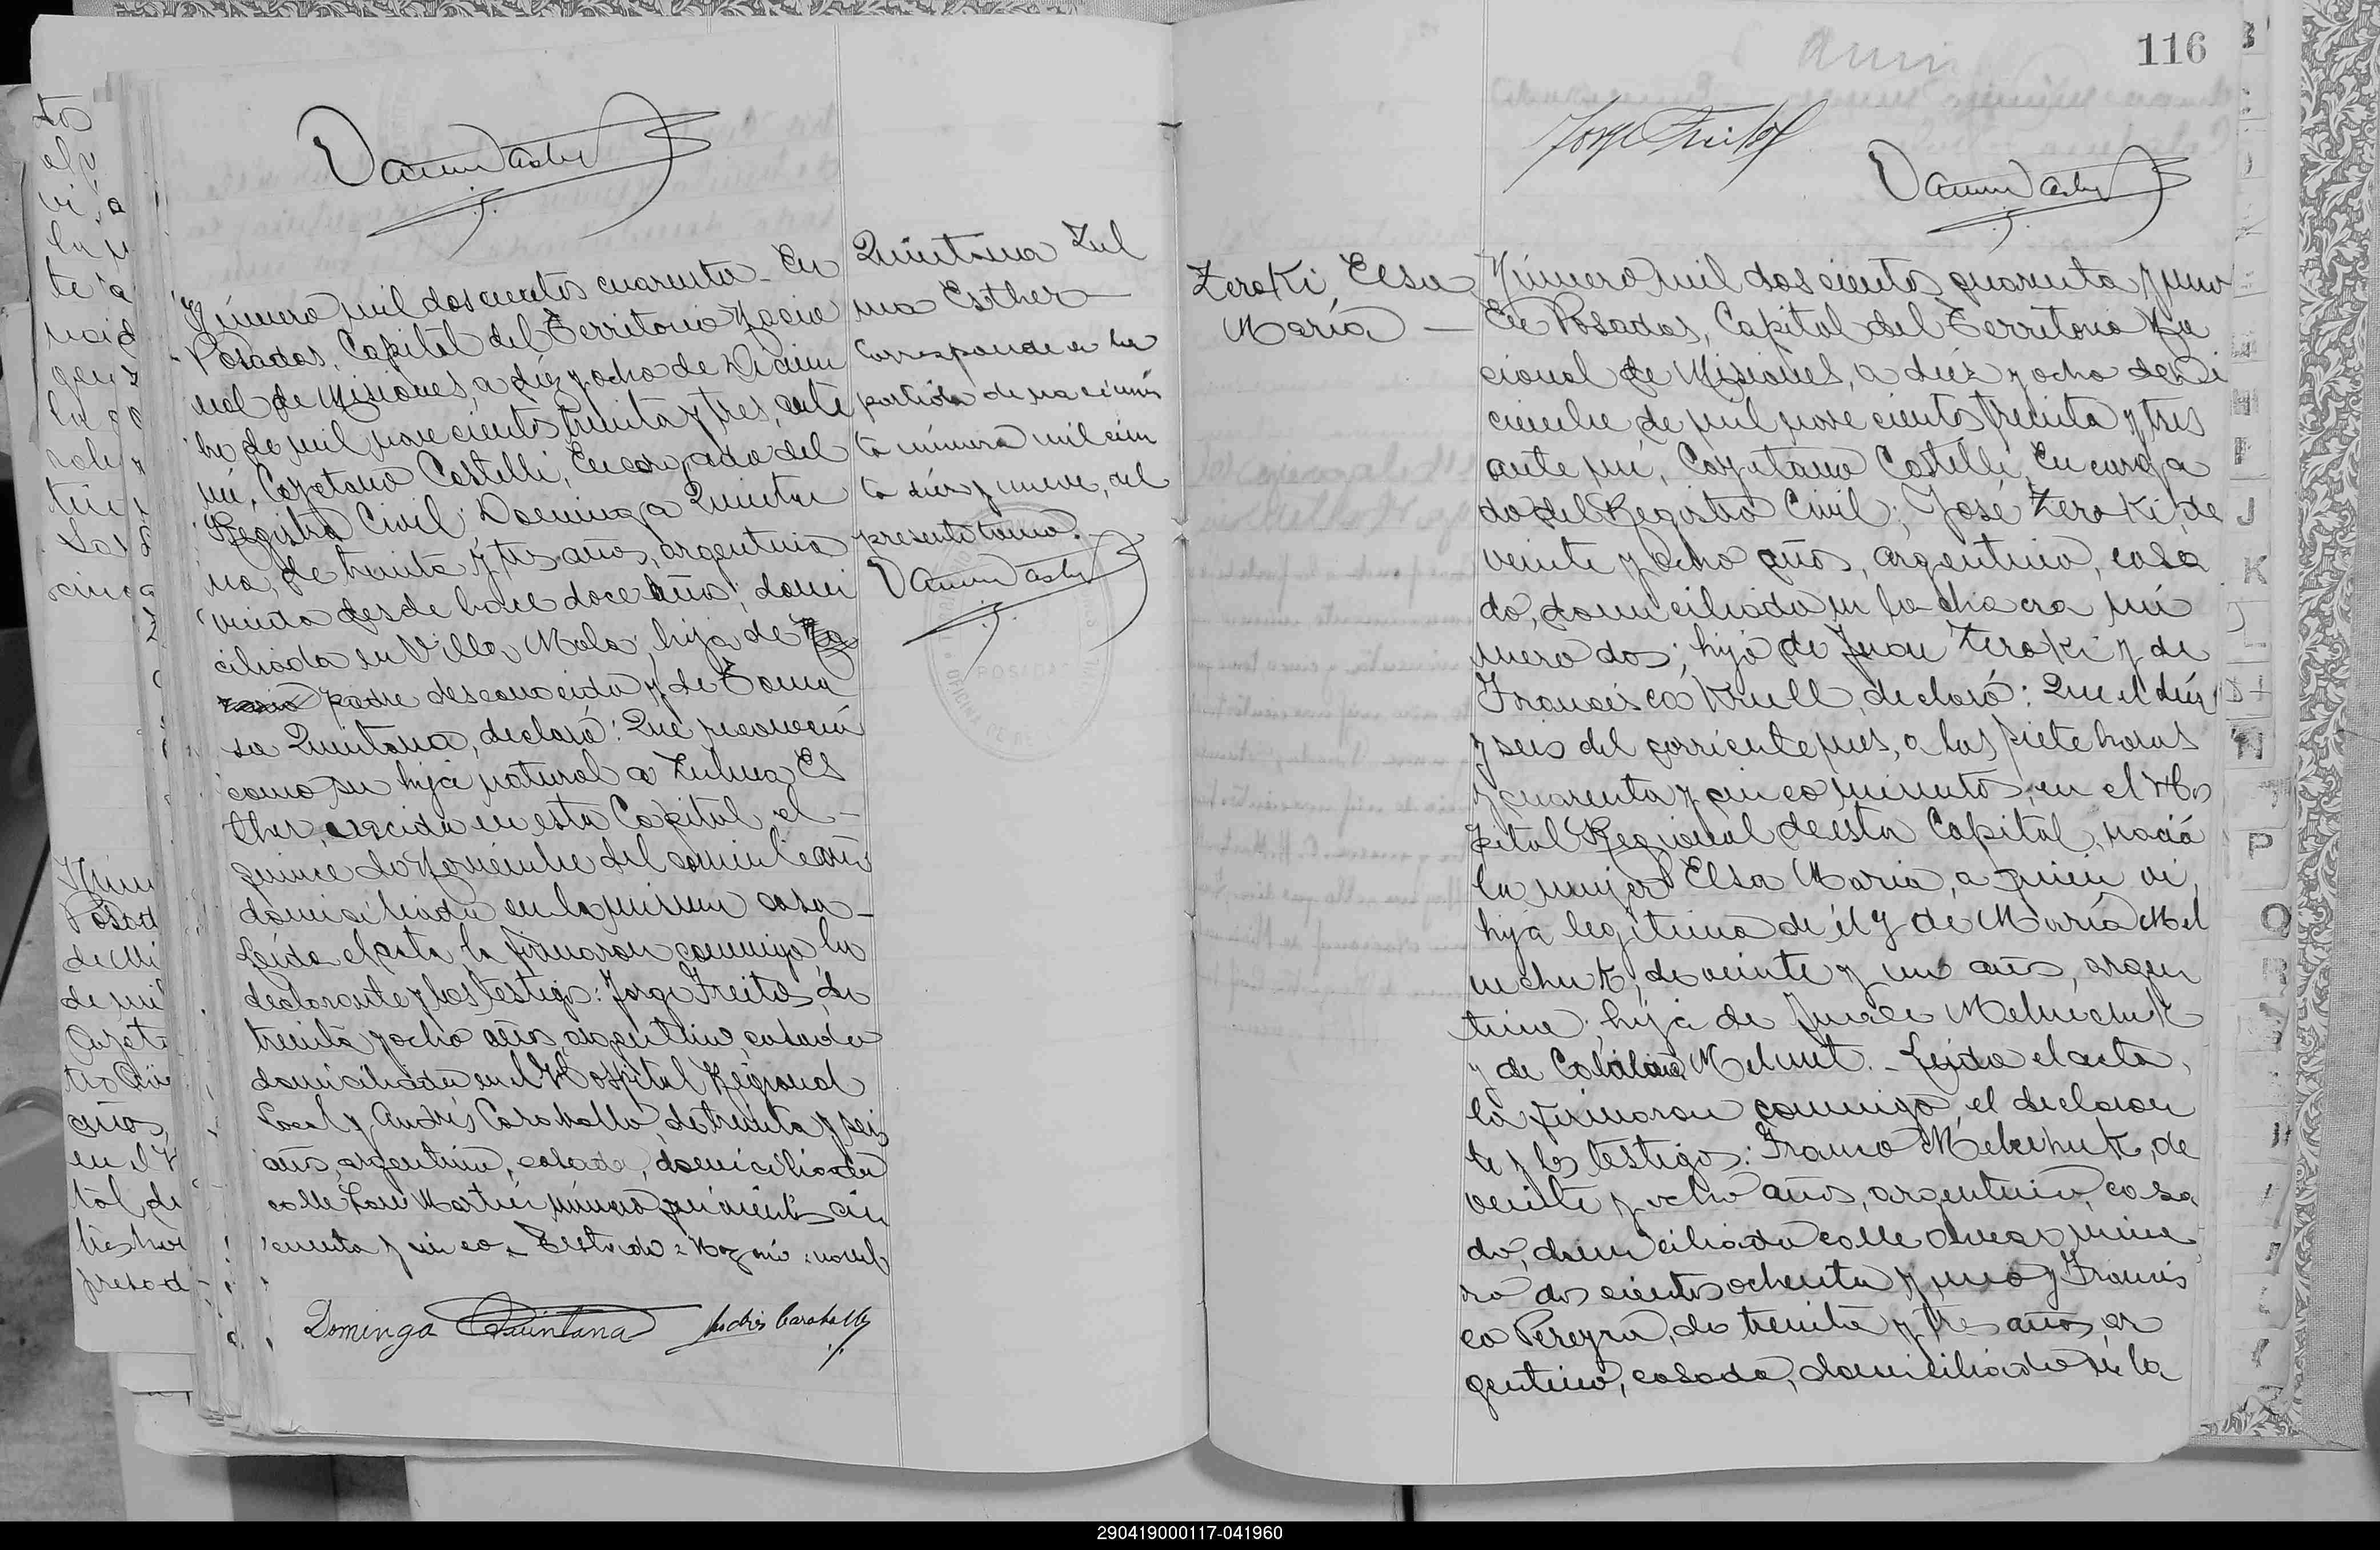 Número mil doscientos cuarenta - En
Posadas, Capital del Territorio Nacio
nal de Misiones, a diez y ocho de Diciem
bre de mil novecientos treinta y tres, ante
mí, Cayetano Castelli, Encargado del
Registro Civil; Dominga Quinta
na, de treinta y tres años, argentina
viuda desde hace doce años; domi
ciliada en Villa Mola, hija de
padre desconocido y de Toma
sa Quintana, declaró: Que reconocía
como su hija natural a Zulma Es
ther, nacida en esta Capital, el -
quince de Noviembre del corriente año
domiciliada en la misma casa -
Leída el acta, la firmaron conmigo la
declarante y los testigos: Jorge Freitas, de
treinta y ocho años, argentino, casado
domiciliado en el Hospital Regional
Local y Andrés Caraballo, de treinta y seis
años, argentino, casado, domiciliado
calle San Martín número quinientos cin
cuenta y cinco - Testado:
Dominga Quintana Andrés Caraballo
Quintana Zul
ma Esther -
Corresponde a la
partida de nacimien
to número mil cien
to diez y nueve, del
presente tomo.
POSADAS
116
Zeroki, Elsa
María -
Número mil doscientos cuarenta y uno
En Posadas, Capital del Territorio Na
cional de Misiones, a diez y ocho de Di
ciembre, de mil novecientos treinta y tres
ante mí, Cayetano Castelli, Encarga
do del Registro Civil; José Zeroki, de
veinte y ocho años, argentino, casa
do, domiciliado en la chacra nú
mero dos; hijo de Juan Zeroki y de
Francisca Krull, declaró: Que el diez
y seis del corriente mes, a las siete horas
y cuarenta y cinco minutos, en el Hos
pital Regional de esta Capital, nació
la mujer Elsa María, a quien vi,
hija legítima de él y de María Mel
nechuk, de veinte y un años, argen
tina, hija de Melnechuk
y de Melnut. - Leída el acta,
la firmaron conmigo, el declaran
te y los testigos: Franco Melechuk, de
veinte y ocho años, argentino, casa
do, domiciliado calle núme
ro doscientos ochenta y uno y Francis
co Pereyra, de treinta y tres años, ar
gentino, casado, domiciliado en la
B
J
K
P
Q
290419000117-041960